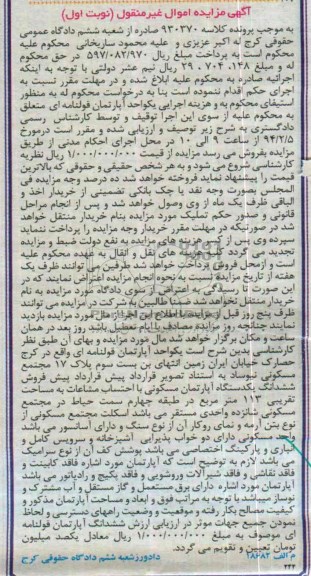 آگهی مزایده اموال غیرمنقول (نوبت اول)
به موجب پرونده کلاسه ۹۳۰۳۷۰ صادره از شعبه ششم دادگاه عمومی
حقوقی کرج له اکبر عزیزی و علیه محمود ساریخانی محکوم علیه
محکوم است به پرداخت مبلغ ریال ۵۹۷/۰۸۲/۹۷۰ در حق محکوم
له و مبلغ ۲۹،۷۰۴،۱۴۸ ریال نیم عشر دولتی با توجه به اینکه
اجرائیه صادره به محکوم علیه ابلاغ شده و در مهلت مقرر نسبت به
اجرای حکم اقدام ننموده است بنا به درخواست محکوم له به منظور
استیفای محکوم به و هزینه اجرایی یکواحد آپارتمان قولنامه ای متعلق
به محکوم علیه از سوی این اجرا توقیف و توسط کارشناس رسمی
دادگستری به شرح زیر توصیف و ارزیابی شده و مقرر است درمورخ
۹۴/۲/۵ از ساعت ۹ الی ۱۰ در محل اجرای احکام مدنی از طریق
مزایده بفروش می رسد مزایده از قیمت ۱/۰۰۰/۰۰۰/۰۰۰ ریال نظریه
کارشناسی شروع می شود و به هر شخص حقیقی و حقوقی که بالاترین
قیمت را پیشنهاد نماید فروخته خواهد شد ده درصد وجه مزایده فی
المجلس بصورت وجه نقد یا چک بانکی تضمینی از خریدار اخذ و
الباقی ظرف یک ماه از وی وصول خواهد شد و پس از انجام مراحل
قانونی و صدور حکم تملیک مورد مزایده بنام خریدار منتقل خواهد
شد در صورتیکه در مهلت مقرر خریدار وجه مزایده را پرداخت ننماید
سپرده وی پس از کسر هزینه های مزایده به نفع دولت ضبط و مزایده
تجدید می گردد کلیه هزینه های نقل و انتقال به عهده محکوم علیه
است و ازمحل فروش پرداخت خواهد شد طرفین می توانند ظرف یک
هفته از تاریخ مزایده نسبت به نحوه انجام مزایده اعتراض نمایند که در
این صورت تا رسیدگی به اعتراض از سوی دادگاه مورد مزایده به نام
خریدار منتقل نخواهد شد ضمنا طالبین به شرکت در مزایده می توانند
ظرف پنج روز قبل از مزایده با اطلاع این اجرا از مال مورد مزایده بازدید
نمایند چنانچه روز مزایده مصادف با ایام تعطیل باشد روز بعد در همان
ساعت و مکان برگزار خواهد شد مال مورد مزایده و بهای آن طبق نظر
کارشناسی بدین شرح است یکواحد آپارتمان قولنامه ای واقع در کرج
حصارک خیابان ایران زمین انتهای بن بست سوم پلاک ۱۷ مجتمع
مسکونی نیوساد به استناد تصویر قرارداد پیش قرارداد پیش فروش
ششدانگ یکدستگاه آپارتمان مسکونی با احتساب مشاعات به مساحت
تقریبی ۱۱۳ متر مربع در طبقه چهارم سمت حیاط در مجتمع
مسکونی شانزده واحدی مستقر می باشد اسکلت مجتمع مسکونی از
نوع بتن آرمه و نمای روکار آن از نوع سنگ و دارای آسانسور می باشد
واحد مسکونی دارای دو خواب پذیرایی آشپزخانه و سرویس کامل و
انباری و پارکینگ اختصاصی می باشد پوشش کف آن از نوع سرامیک
می باشد لازم به توضیح است که آپارتمان مورد اشاره فاقد کابینت و
فاقد نقاشی و فاقد شیر آلات روشویی و فاقد پکیج و رادیاتور می باشد
آپارتمان مورد اشاره دارای برق مستعمل و گاز مستقل و آب مشترک و
نوساز میباشد با توجه به مراتب فوق و ابعاد و مساحت آپارتمان مذکور و
کیفیت مصالح بکار رفته و موقعیت و وضعیت راههای دسترسی و لحاظ
نمودن جمیع جهات موثر در ارزیابی ارزش ششدانگ آپارتمان قولنامه
ای موصوف به مبلغ ۱/۰۰۰/۰۰۰/۰۰۰ ریال معادل یکصد میلیون
تومان تعیین و تقویم می گردد.
م الف ۲۸۶۸۲ دادورزشعبه ششم دادگاه حقوقی کرج